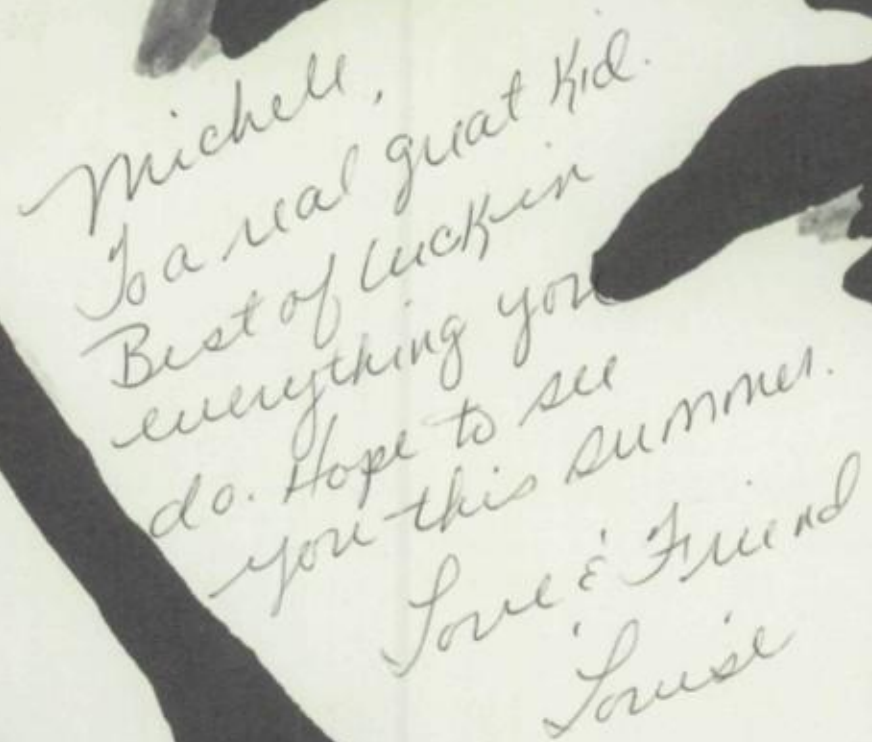 Michele,
To a real great Kid.
Best of luck in
everything you
do. Hope to see
you this summer.
Love & Friend
Louise